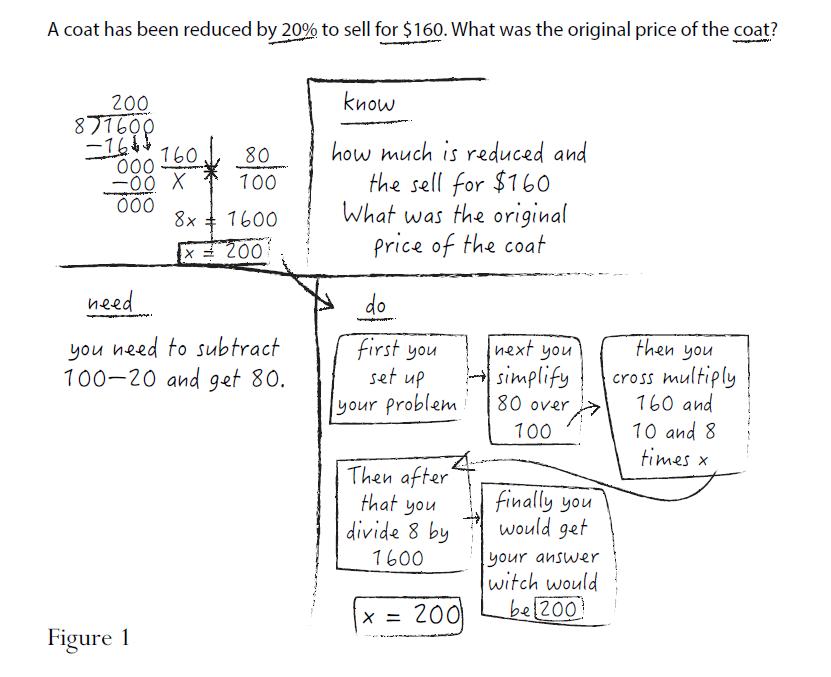 A coat has been reduced by 20% to sell for $160. What was the original price of the coat?
200
8)1600
-16
000
-00
000
160 80
X 100
8x = 1600
x = 200
know
how much is reduced and
the sell for $160
What was the original
price of the coat
need
you need to subtract
100-20 and get 80.
do
first you
set up
your problem
next you
simplify
80 over
100
then you
cross multiply
160 and
10 and 8
times x
Then after
that you
divide 8 by
1600
finally you
would get
your answer
witch would
be 200
x = 200
Figure 1